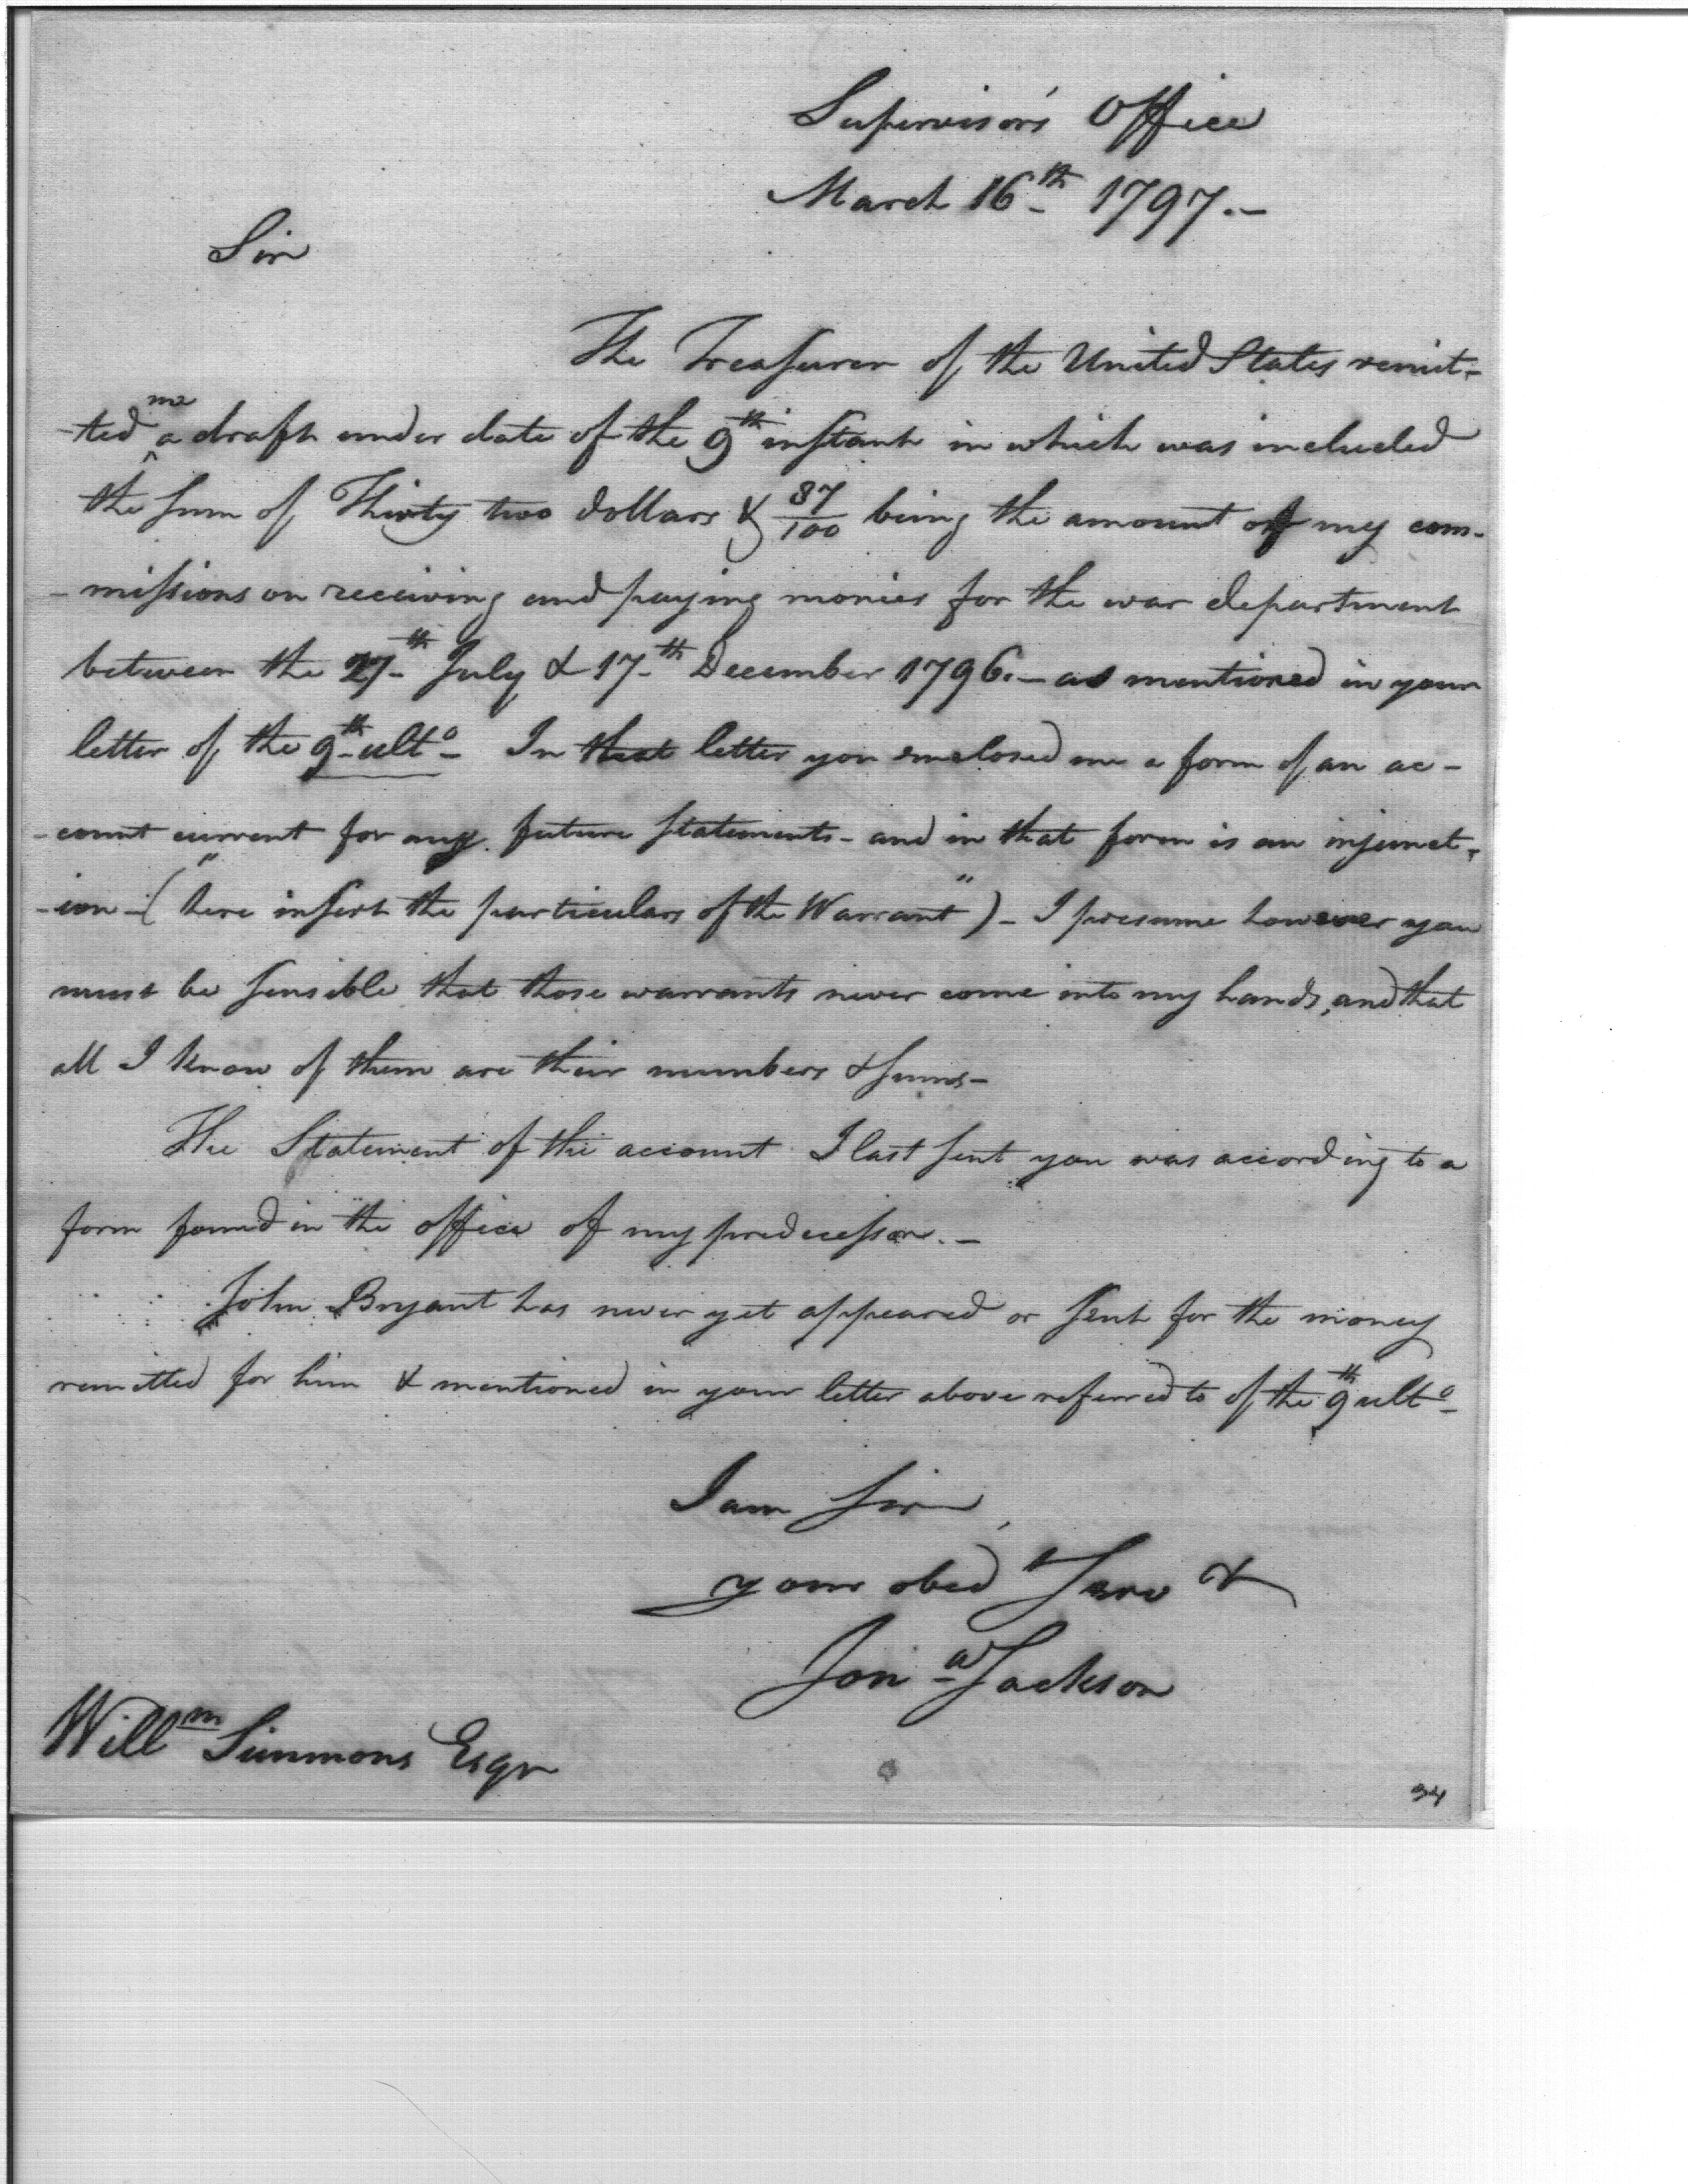 Supervisor's Office
March 16th 1797.—
Sir
The Treasurer of the United States remit-
-ted me a draft under date of the 9th instant in which was included
the sum of Thirty two dollars & 87/100 being the amount of my com-
-missions on receiving and paying monies for the war department
between the 27th July & 17th December 1796.— as mentioned in your
letter of the 9th ulto— In that letter you enclosed me a form of an ac-
-count current for any future statements - and in that form is an injunct-
-ion - ("here insert the particulars of the Warrant") - I presume however you
must be sensible that those warrants never come into my hands, and that
all I know of them are their numbers & sums—
The Statement of the account I last sent you was according to a
form found in the office of my predecessor.—
John Bryant has never yet appeared or sent for the money
remitted for him & mentioned in your letter above referred to of the 9th ulto—
I am Sir,
your obedt Serv &
Jona Jackson
Willm Simmons Esqr
34